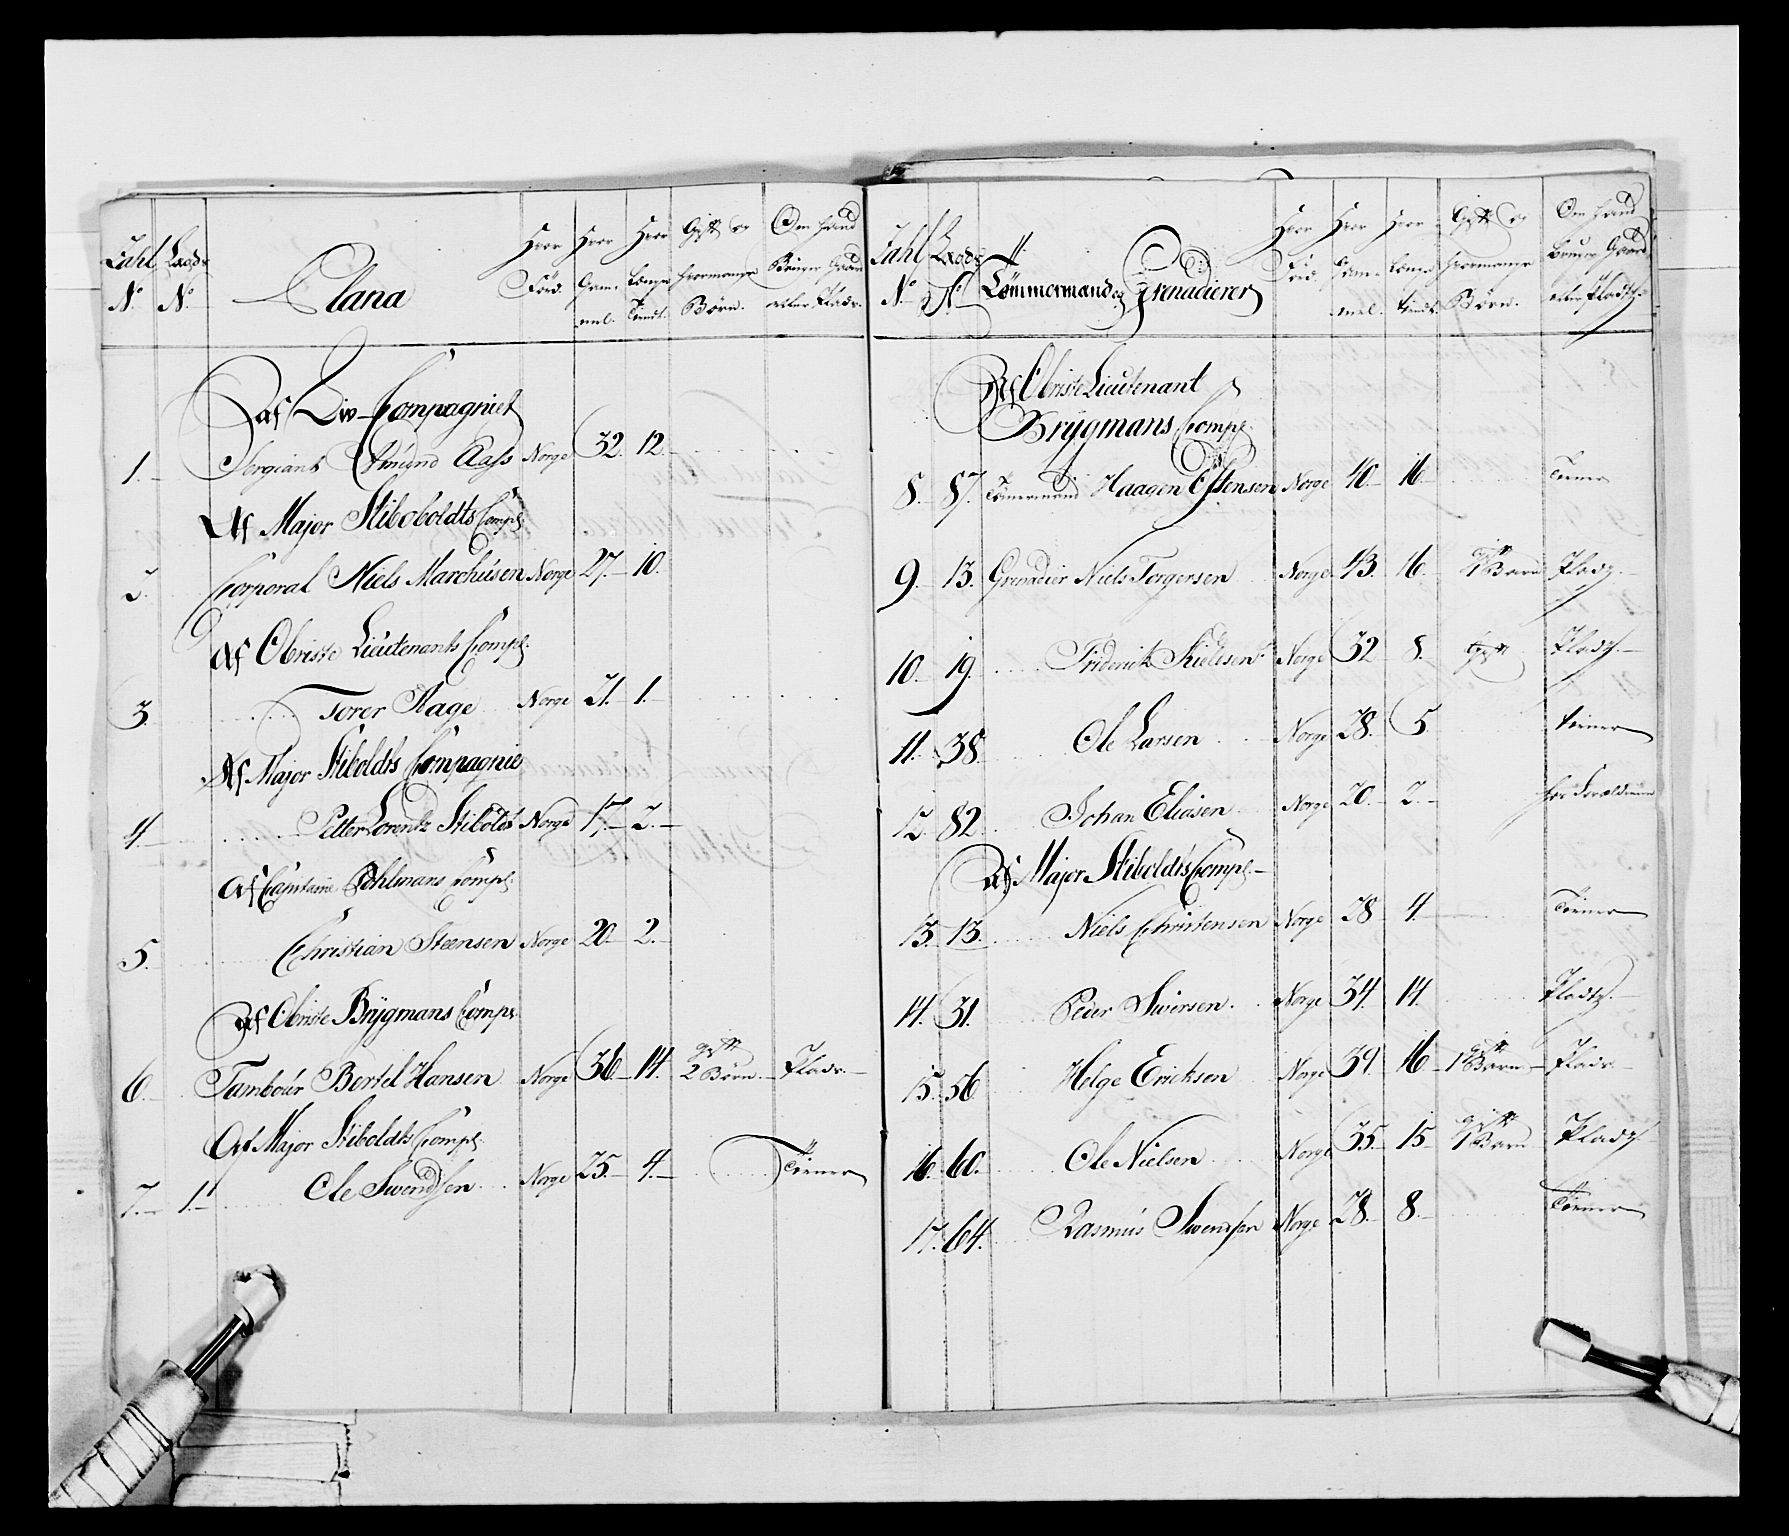 Tahl No. Lægds No. Etana Hvor Fød. Hvor Gam-mel. Hvor Længe Tient. Gift og Hvormange Børn. Om Hand Bruger Gaard eller Plads.
Af Liv-Compagniet
1. Sergiant Amund Aass Norge 32. 12.
Af Major Stiboboldts Comp.
2. Corporal Niels Marchusen Norge 27. 10.
Af Obriste Lieutenants Comp.
3. Torer Hage Norge 21. 1.
Af Major Stiboldts Compagnie
4. Petter Lorentz Stiboldt Norge 17. 2.
Af Capitaine Pohlmans Comp.
5. Christian Steensen Norge 20. 2.
Af Obriste Brÿgmans Comp.
6. Tambour Bertel Hansen Norge 36. 14. gift 2 Børn Plads.
Af Major Stiboldts Comp.
7. 1. Ole Swendsen Norge 25. 4. Tiener
Tahl No. Lægds No. Tømmermand og Grenadierer Hvor Fød. Hvor Gam-mel. Hvor Længe Tient. Gift og Hvormange Børn. Om Hand Bruger Gaard eller Pladtz.
Af Obriste Lieutenant
Brÿgmans Comp.
8. 87. Tømermand Haagen Estensen Norge 40. 16. Tiener
9. 13. Grenadier Niels Torgersen Norge 43. 16. gift 1 Barn Pladz.
10. 19. Friderik Kielsen Norge 32 8. gift Pladz.
11. 38. Ole Larsen Norge 28. 5. Tiener
12. 82. Johan Eliasen Norge 20. 2.
Af Major Stiboldts Comp.
13. 13. Niels Christensen Norge 28 4. Tiener
14. 31. Peder Swersen Norge 34. 14. Pladtz.
15. 56 Helge Ericksen Norge 39. 16 gift 1 Barn Plads.
16. 60. Ole Nielsen Norge 35. 15 gift 1 Barn Pladz.
17. 64. Rasmus Swendsen Norge 28. 8. Tiener